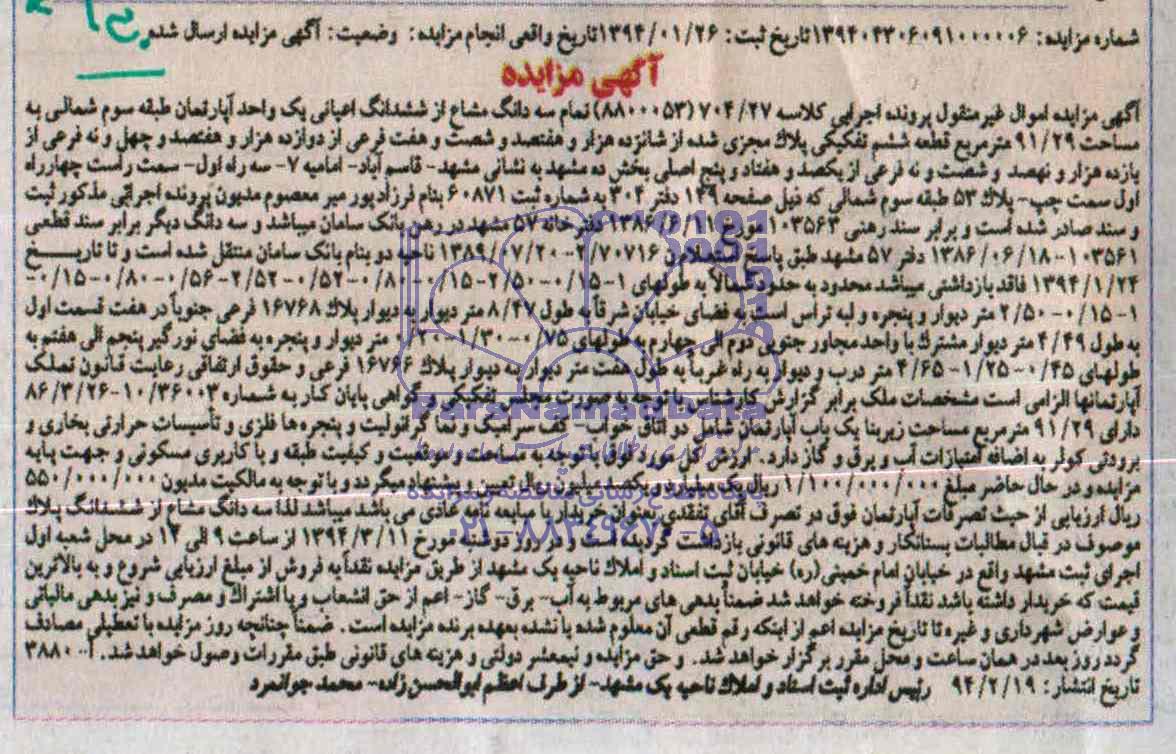 شماره مزایده: ۱۳۹۴۰۴۳۰۶۰۹۱۰۰۰۰۰۶ تاریخ ثبت: ۱۳۹۴/۰۱/۲۶ تاریخ واقعی انجام مزایده: وضعیت: آگهی مزایده ارسال شده.
آگهی مزایده
آگهی مزایده اموال غیرمنقول پرونده اجرایی کلاسه ۷۰۴/۲۷ (۸۸۰۰۰۵۳) تمام سه دانگ مشاع از ششدانگ اعیانی یک واحد آپارتمان طبقه سوم شمالی به
مساحت ۹۱/۲۹ مترمربع قطعه ششم تفکیکی پلاک مجزی شده از شانزده هزار و هفتصد و شصت و هفت فرعی از دوازده هزار و هفتصد و چهل و نه فرعی از
یازده هزار و نهصد و شصت و نه فرعی از یکصد و هفتاد و پنج اصلی بخش ده مشهد به نشانی مشهد- قاسم آباد- امامیه ۷- سه راه اول- سمت راست چهارراه
اول سمت چپ- پلاک ۵۳ طبقه سوم شمالی که ذیل صفحه ۱۴۹ دفتر ۳۰۴ به شماره ثبت ۶۰۸۷۱ بنام فرزاد پور میر معصوم مدیون پرونده اجرائی مذکور ثبت
و سند صادر شده است و برابر سند رهنی ۱۰۳۵۶۳ مورخ ۱۳۸۶/۶/۱۱ دفترخانه ۵۷ مشهد در رهن بانک سامان میباشد و سه دانگ دیگر برابر سند قطعی
۱۰۳۵۶۱-۱۳۸۶/۰۶/۱۸ دفتر ۵۷ مشهد طبق پاسخ استعلام ن ۲/۷۰۷۱۶-۱۳۸۹/۰۷/۲۰ ناحیه دو بنام بانک سامان منتقل شده است و تا تاریخ
۱۳۹۴/۱/۲۴ فاقد بازداشتی میباشد محدود به حدود شمالاً به طولهای ۱-۰/۱۵-۲/۵۰-۰/۱۵-۰/۸۰-۰/۵۲-۲/۵۲-۰/۵۶-۰/۸۰-۰/۱۵-
۱-۰/۱۵-۲/۵۰ متر دیوار و پنجره و لبه تراس است به فضای خیابان شرقاً به طول ۸/۴۷ متر دیوار به دیوار پلاک ۱۶۷۶۸ فرعی جنوباً در هفت قسمت اول
به طول ۴/۴۹ متر دیوار مشترک با واحد مجاور جنوبی دوم الی چهارم به طولهای ۰/۷۵-۱/۳۰ متر دیوار و پنجره به فضای نورگیر پنجم الی هفتم به
طولهای ۰/۴۵-۱/۲۵-۴/۶۵ متر درب و دیوار به راه غرباً به طول هفت متر دیوار به دیوار پلاک ۱۶۷۶۶ فرعی و حقوق ارتفاقی رعایت قانون تملک
آپارتمانها الزامی است مشخصات ملک برابر گزارش کارشناس با توجه به صورت مجلس تفکیکی و گواهی پایان کار به شماره ۱۰/۳۶۰۰۳-۸۶/۳/۲۶
دارای ۹۱/۲۹ مترمربع مساحت زیربنا یک باب آپارتمان شامل دو اتاق خواب- کف سرامیک و نما گرانولیت و پنجره ها فلزی و تأسیسات حرارتی بخاری و
برودتی کولر به اضافه امتیازات آب و برق و گاز دارد. ارزش کل مورد فوق با توجه به مساحت و موقعیت و کیفیت طبقه و با کاربری مسکونی و جهت پایه
مزایده و در حال حاضر مبلغ ۱/۱۰۰/۰۰۰/۰۰۰ ریال یک میلیارد و یکصد میلیون ریال تعیین و پیشنهاد میگردد و با توجه به مالکیت مدیون ۵۵۰/۰۰۰/۰۰۰
ریال ارزیابی از حیث تصرفات آپارتمان فوق در تصرف آقای تفقدی بعنوان خریدار با مبایعه نامه عادی می باشد میباشد لذا سه دانگ مشاع از ششدانگ پلاک
موصوف در قبال مطالبات بستانکار و هزینه های قانونی بازداشت گردیده است و در روز دوشنبه مورخ ۱۳۹۴/۳/۱۱ از ساعت ۹ الی ۱۲ در محل شعبه اول
اجرای ثبت مشهد واقع در خیابان امام خمینی (ره) خیابان ثبت اسناد و املاک ناحیه یک مشهد از طریق مزایده نقداً به فروش از مبلغ ارزیابی شروع و به بالاترین
قیمت که خریدار داشته باشد نقداً فروخته خواهد شد ضمناً بدهی های مربوط به آب- برق- گاز- اعم از حق انشعاب و یا اشتراک و مصرف و نیز بدهی مالیاتی
و عوارض شهرداری و غیره تا تاریخ مزایده اعم از اینکه رقم قطعی آن معلوم شده یا نشده بعهده برنده مزایده است. ضمناً چنانچه روز مزایده با تعطیلی مصادف
گردد روز بعد در همان ساعت و محل مقرر برگزار خواهد شد. و حق مزایده و نیمعشر دولتی و هزینه های قانونی طبق مقررات وصول خواهد شد. آ- ۳۸۸۰
تاریخ انتشار: ۹۴/۲/۱۹ رئیس اداره ثبت اسناد و املاک ناحیه یک مشهد- از طرف اعظم ابوالحسن زاده- محمد جوانمرد
ParsNamadData
پایگاه اطلاع رسانی مناقصه و مزایده
۰۲۱-۸۸۳۴۹۶۷۰-۵